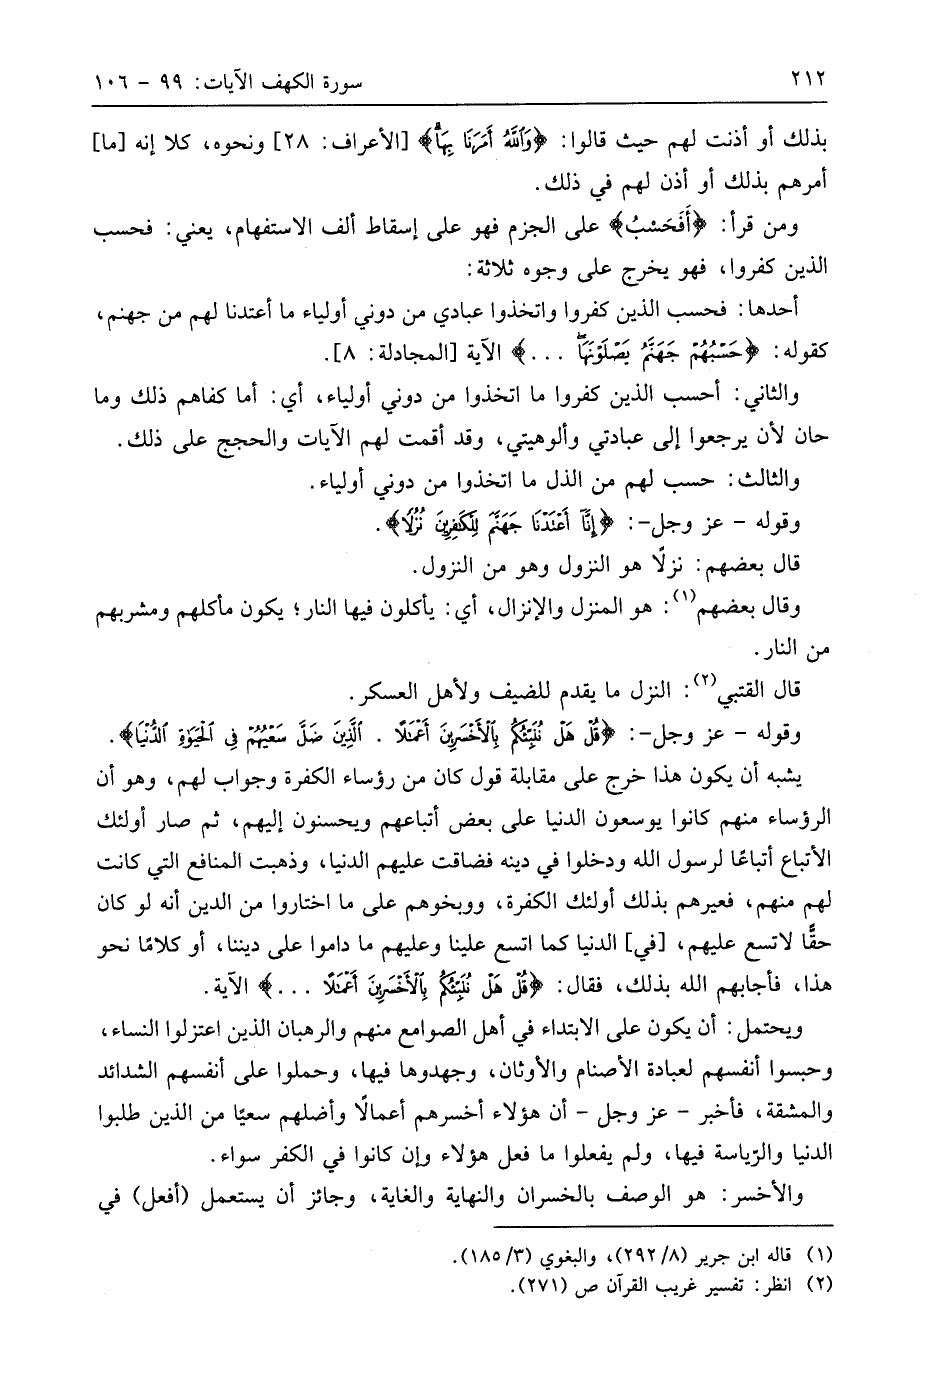 ٢١٢ سورة الكهف الآيات: ٩٩ - ١٠٦
بذلك أو أذنت لهم حيث قالوا: ﴿وَٱللَّهُ أَمَرَنَا بِهَاۗ﴾ [الأعراف: ٢٨] ونحوه، كلا إنه [ما]
أمرهم بذلك أو أذن لهم في ذلك.
ومن قرأ: ﴿أَفَحَسْبُ﴾ على الجزم فهو على إسقاط ألف الاستفهام، يعني: فحسب
الذين كفروا، فهو يخرج على وجوه ثلاثة:
أحدها: فحسب الذين كفروا واتخذوا عبادي من دوني أولياء ما أعتدنا لهم من جهنم،
كقوله: ﴿حَسْبُهُمْ جَهَنَّمُ يَصْلَوْنَهَاۖ ...﴾ الآية [المجادلة: ٨].
والثاني: أحسب الذين كفروا ما اتخذوا من دوني أولياء، أي: أما كفاهم ذلك وما
حان لأن يرجعوا إلى عبادتي وألوهيتي، وقد أقمت لهم الآيات والحجج على ذلك.
والثالث: حسب لهم من الذل ما اتخذوا من دوني أولياء.
وقوله - عز وجل-: ﴿إِنَّآ أَعْتَدْنَا جَهَنَّمَ لِلْكَٰفِرِينَ نُزُلًا﴾.
قال بعضهم: نزلًا هو النزول وهو من النزول.
وقال بعضهم(١): هو المنزل والإنزال، أي: يأكلون فيها النار؛ يكون مأكلهم ومشربهم
من النار.
قال القتبي(٢): النزل ما يقدم للضيف ولأهل العسكر.
وقوله - عز وجل-: ﴿قُلْ هَلْ نُنَبِّئُكُم بِٱلْأَخْسَرِينَ أَعْمَٰلًا . ٱلَّذِينَ ضَلَّ سَعْيُهُمْ فِى ٱلْحَيَوٰةِ ٱلدُّنْيَا﴾.
يشبه أن يكون هذا خرج على مقابلة قول كان من رؤساء الكفرة وجواب لهم، وهو أن
الرؤساء منهم كانوا يوسعون الدنيا على بعض أتباعهم ويحسنون إليهم، ثم صار أولئك
الأتباع أتباعًا لرسول الله ودخلوا في دينه فضاقت عليهم الدنيا، وذهبت المنافع التي كانت
لهم منهم، فعيرهم بذلك أولئك الكفرة، ووبخوهم على ما اختاروا من الدين أنه لو كان
حقًّا لاتسع عليهم، [في] الدنيا كما اتسع علينا وعليهم ما داموا على ديننا، أو كلامًا نحو
هذا، فأجابهم الله بذلك، فقال: ﴿قُلْ هَلْ نُنَبِّئُكُم بِٱلْأَخْسَرِينَ أَعْمَٰلًا ...﴾ الآية.
ويحتمل: أن يكون على الابتداء في أهل الصوامع منهم والرهبان الذين اعتزلوا النساء،
وحبسوا أنفسهم لعبادة الأصنام والأوثان، وجهدوها فيها، وحملوا على أنفسهم الشدائد
والمشقة، فأخبر - عز وجل - أن هؤلاء أخسرهم أعمالًا وأضلهم سعيًا من الذين طلبوا
الدنيا والرّياسة فيها، ولم يفعلوا ما فعل هؤلاء وإن كانوا في الكفر سواء.
والأخسر: هو الوصف بالخسران والنهاية والغاية، وجائز أن يستعمل (أفعل) في
(١) قاله ابن جرير (٨/ ٢٩٢)، والبغوي (٣/ ١٨٥).
(٢) انظر: تفسير غريب القرآن ص (٢٧١).